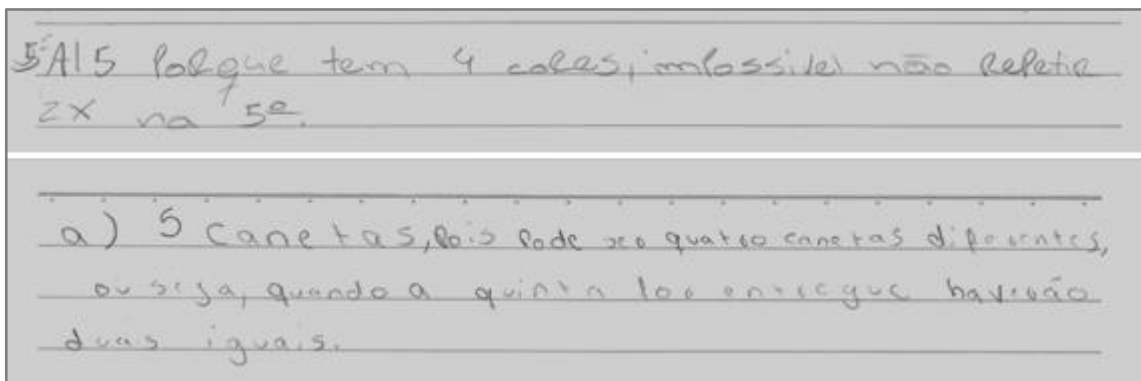 5 A) 5 Porque tem 4 cores, impossível não repetir
2X na 5ª.
a) 5 canetas, pois pode ser quatro canetas diferentes,
ou seja, quando a quinta for entregue haverão
duas iguais.